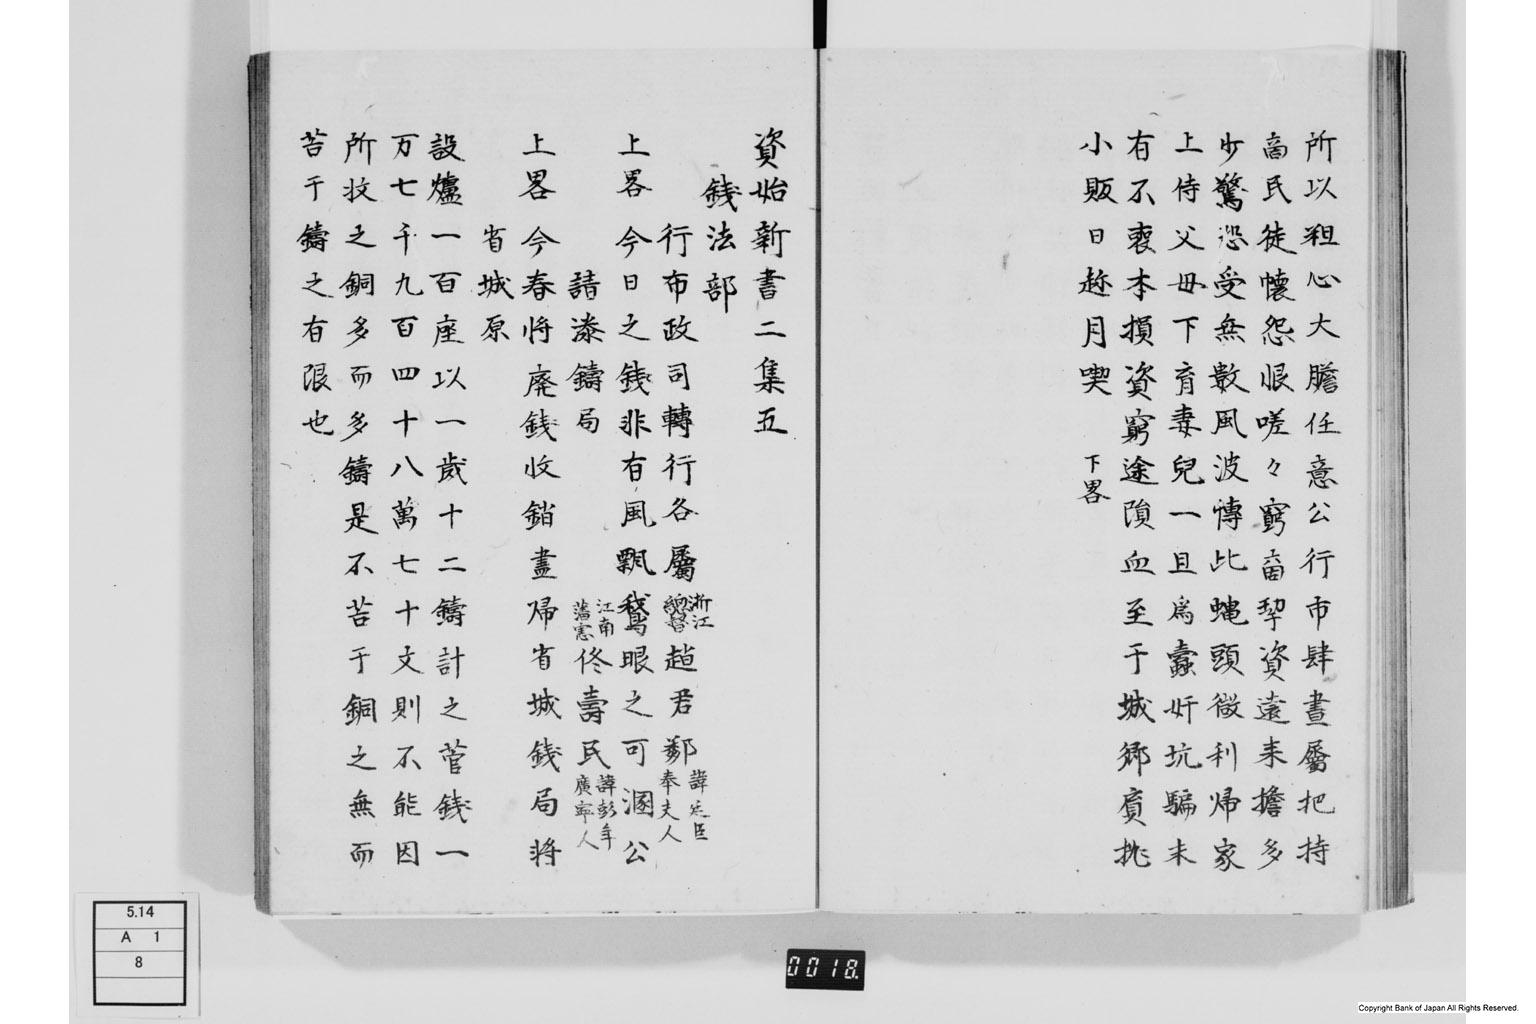 所以粗心大膽任意公行市肆晝屬把持
啇民徒懐怨恨嗟々窮畨挈資遠来擔多
少驚恐受無數風波慱比蝿頭微利帰家
上侍父母下育妻兒一旦爲蠹奸坑騙未
有不喪本損資窮途隕血至于城郷負挑
小販日趂月喫 下畧
資始新書二集五
錢法部
行布政司轉行各屬 浙江總督 趙君鄰 諱廷臣奉天人
上畧今日之錢非有風飄鵞眼之可溷公
請湊鑄局 江南藩憲 佟壽民 諱彭年廣寕人
上畧今春将廃錢收銷盡帰省城錢局将
省城原
設爐一百座以一歳十二鑄計之菅錢一
万七千九百四十八萬七十文則不能因
所收之銅多而多鑄是不苦于銅之無而
苦于鑄之有限也
5.14
A 1
8
0018.
Copyright Bank of Japan All Rights Reserved.